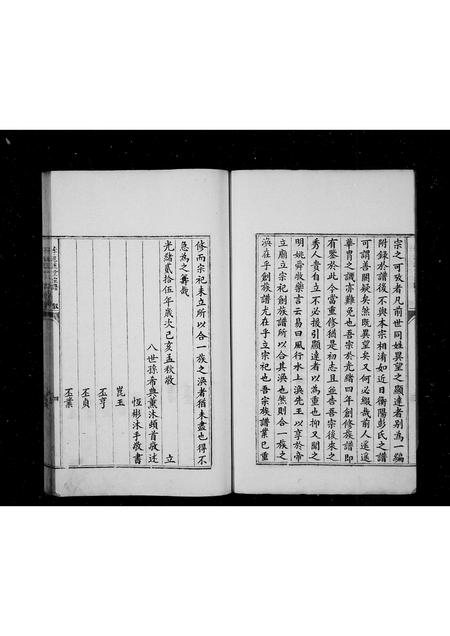 宗之可攷者凡前世同姓異望之顯達者別為一編
附錄於譜後不與本宗相淆如近日衡陽彭氏之譜
可謂善闕疑矣然既異望矣又何必綴哉前人遙遙
華冑之譏亦難免也吾宗於光緒四年創修族譜即
有鑒於此今當重修猶是初志且並告吾宗後來之
秀人貴自立不必援引顯達者以為重也抑又聞之
明姚舜啟樂言云易曰風行水上渙先王以享於帝
立廟立宗祀創族譜所以合其渙也然則合一族之
渙在乎創族譜尤在乎立宗祀也吾宗族譜業已重
修而宗祀未立所以合一族之渙者猶未盡也得不
急為之籌哉
光緒貳拾伍年歲次己亥孟秋穀
立
八世孫希典薰沐頓首敬述
恆彬沐手敬書
崑玉
丕亨
丕貞
丕業